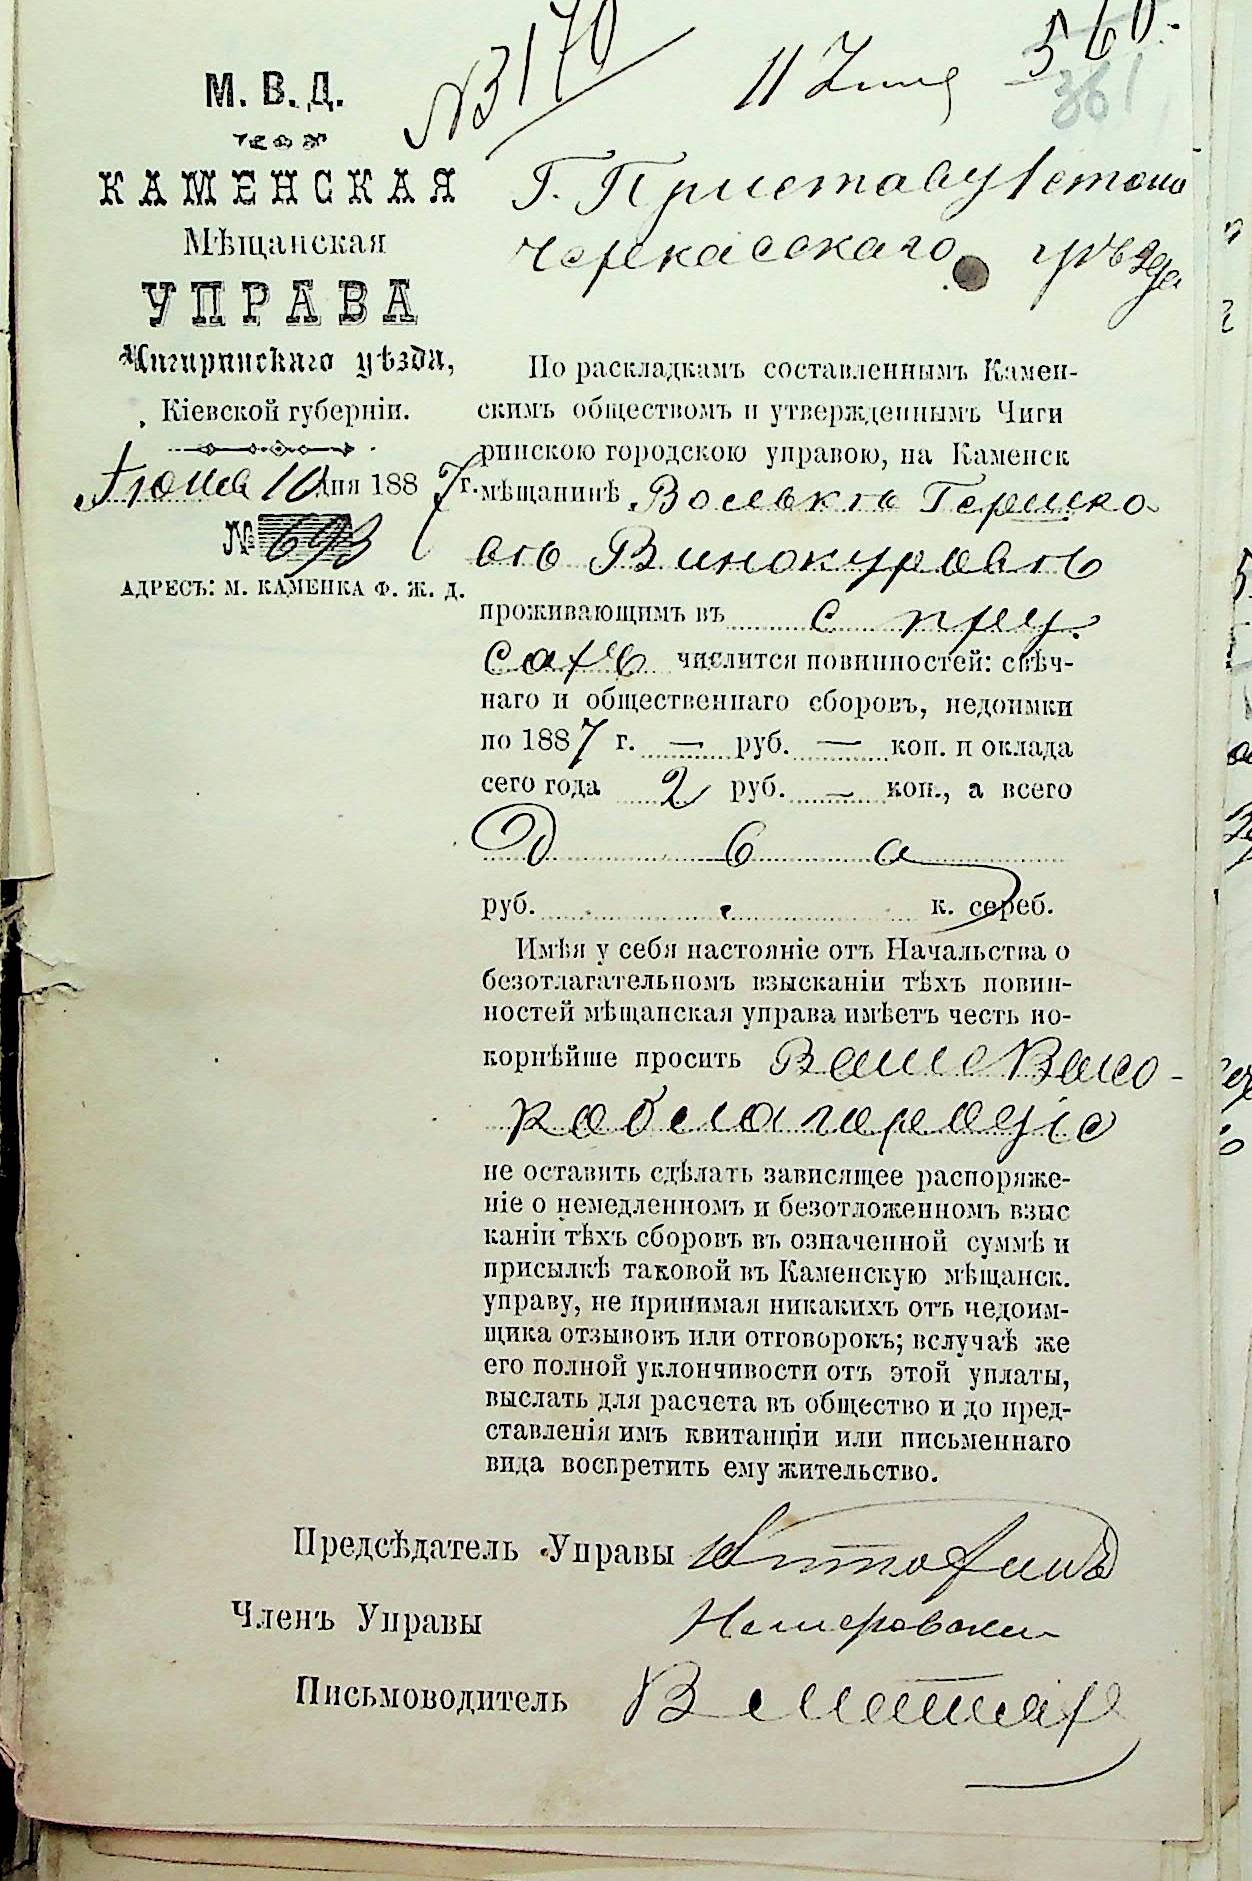 № 3170
11 Июня
560.
361
М. В. Д.
КАМЕНСКАЯ
Мѣщанская
УПРАВА
Чигиринскаго уѣзда,
Кіевской губерніи.
Іюня 10 дня 1887 г.
№ 693
АДРЕСЪ: М. КАМЕНКА Ф. Ж. Д.
Г. Приставу 1 стана
Черкасскаго уѣзда
По раскладкамъ составленнымъ Камен-
скимъ обществомъ и утвержденнымъ Чиги
ринскою городскою управою, на Каменск
мѣщанинѣ Волькѣ Гершко-
вѣ Винокуровѣ
проживающимъ въ с пру
сахъ числится повинностей: свѣч-
наго и общественнаго сборовъ, недоимки
по 1887 г. — руб. — коп. и оклада
сего года 2 руб. — коп., а всего
Два
руб. к. сереб.
Имѣя у себя настояніе отъ Начальства о
безотлагательномъ взысканіи тѣхъ повин-
ностей мѣщанская управа имѣетъ честь по-
корнѣйше просить Ваше Высо-
коблагородіе
не оставить сдѣлать зависящее распоряже-
ніе о немедленномъ и безотложенномъ взыс
каніи тѣхъ сборовъ въ означенной суммѣ и
присылкѣ таковой въ Каменскую мѣщанск.
управу, не принимая никакихъ отъ недоим-
щика отзывовъ или отговорокъ; вслучаѣ же
его полной уклончивости отъ этой уплаты,
выслать для расчета въ общество и до пред-
ставленія имъ квитанціи или письменнаго
вида воспретить ему жительство.
Предсѣдатель Управы
Членъ Управы
Письмоводитель